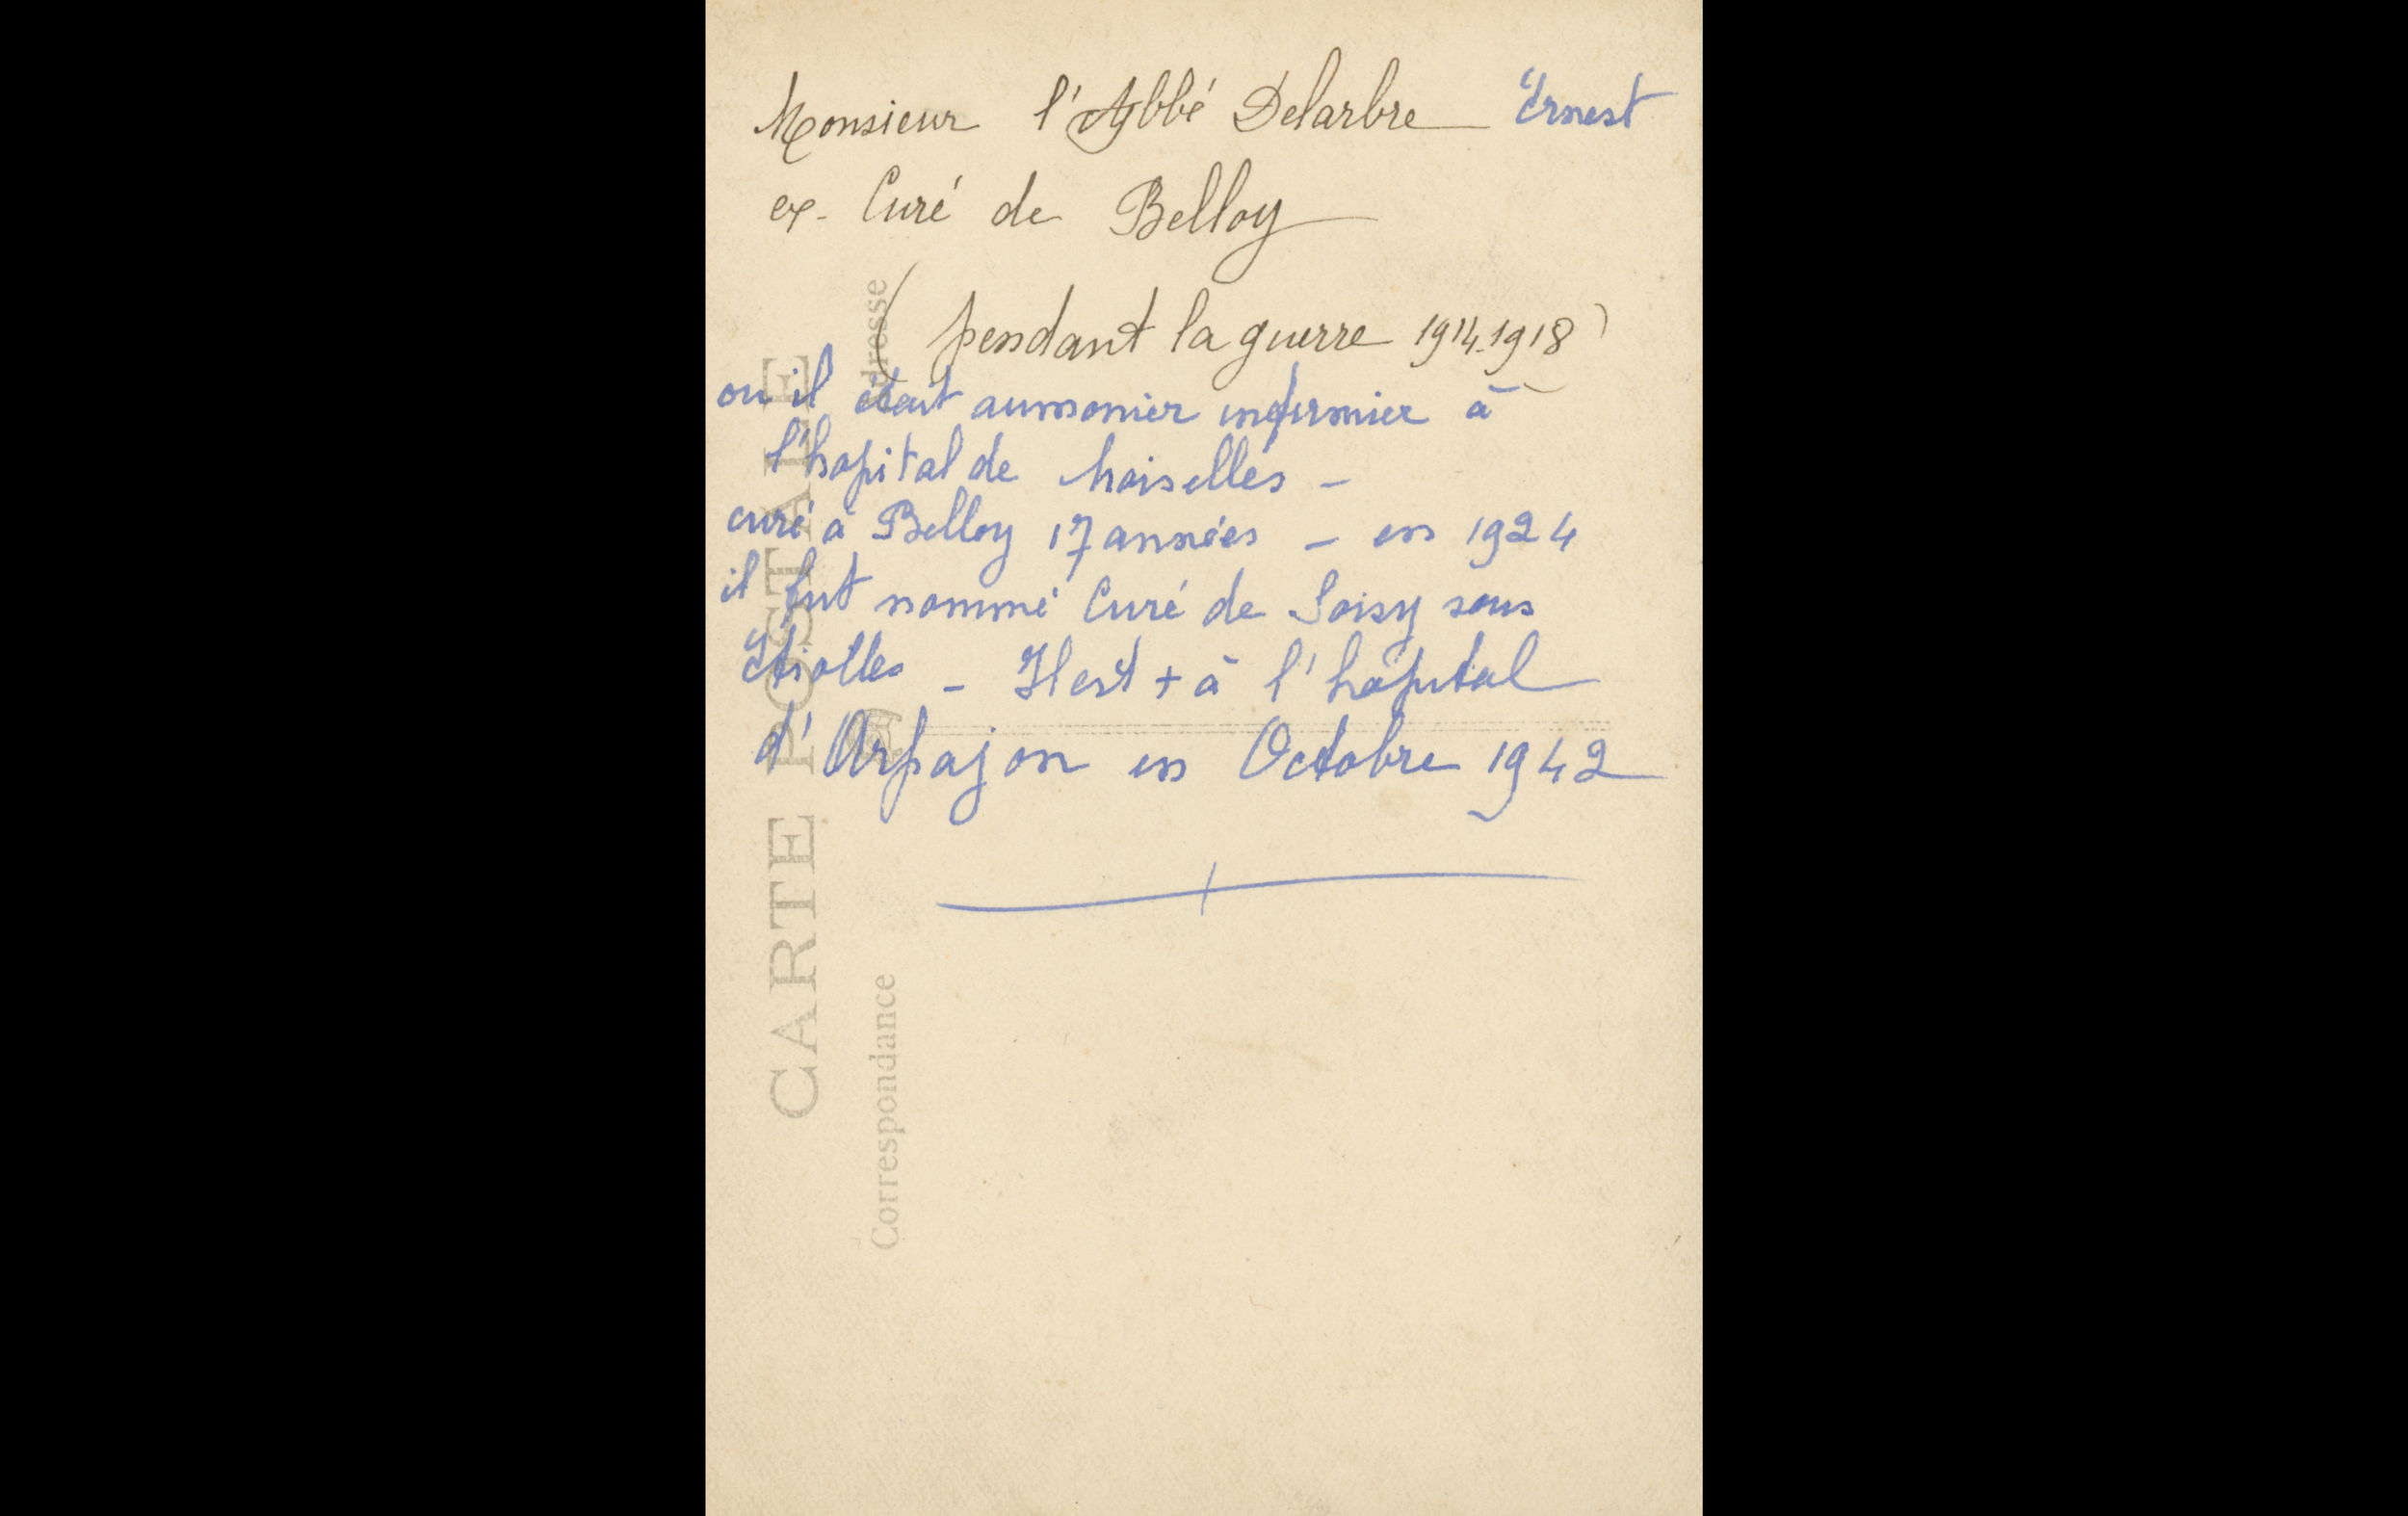 Monsieur l'Abbé Delarbre Ernest
ex-Curé de Belloy
(pendant la guerre 1914-1918)
ou il était aumonier infirmier à
l'hopital de Moiselles -
curé à Belloy 17 années - en 1924
il fut nommé Curé de Soisy sous
Etiolles - Il est + à l'hôpital
d'Arpajon en Octobre 1942
CARTE POSTALE
Correspondance
Adresse